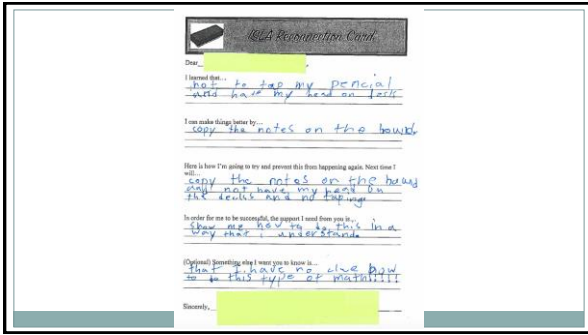 IZLA Reconnection Card
Dear
I learned that...
not to tap my pencial
and have my head on desk
I can make things better by...
copy the notes on the bourd
Here is how I'm going to try and prevent this from happening again. Next time I
will...
copy the notes on the bourd
and not have my head on
the decks and no taping
In order for me to be successful, the support I need from you is...
show me how to do this in a
way that i understand.
(Optional) Something else I want you to know is...
that I have no clue how
to do this type of math!!!!!
Sincerely,